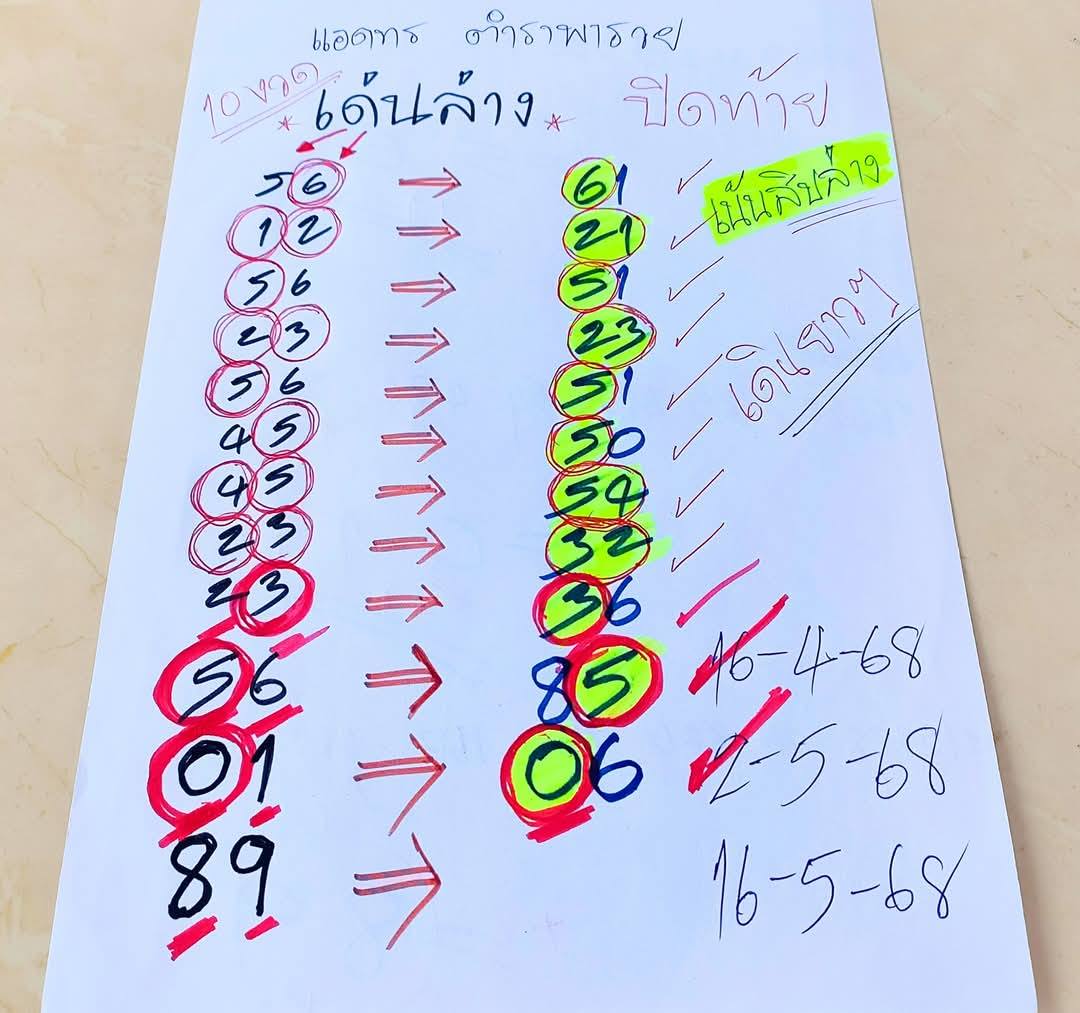 แอดทร ตำราพารวย
10 งวด เด่นล่าง ปิดท้าย
56 61
เน้นสิบล่าง
12 21
56 51
23 23
เดินยาวๆ
56 51
45 50
45 54
23 32
23 36
56 85 16-4-68
01 06 2-5-68
89 16-5-68